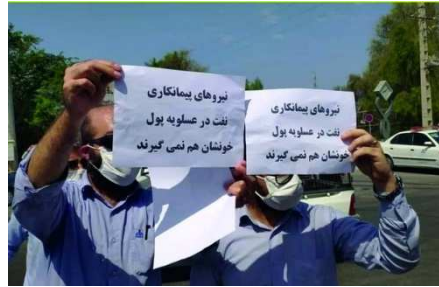 نیروهای پیمانکاری
نفت در عسلویه پول
خونشان هم نمی گیرند
نیروهای پیمانکاری
نفت در عسلویه پول
خونشان هم نمی گیرند